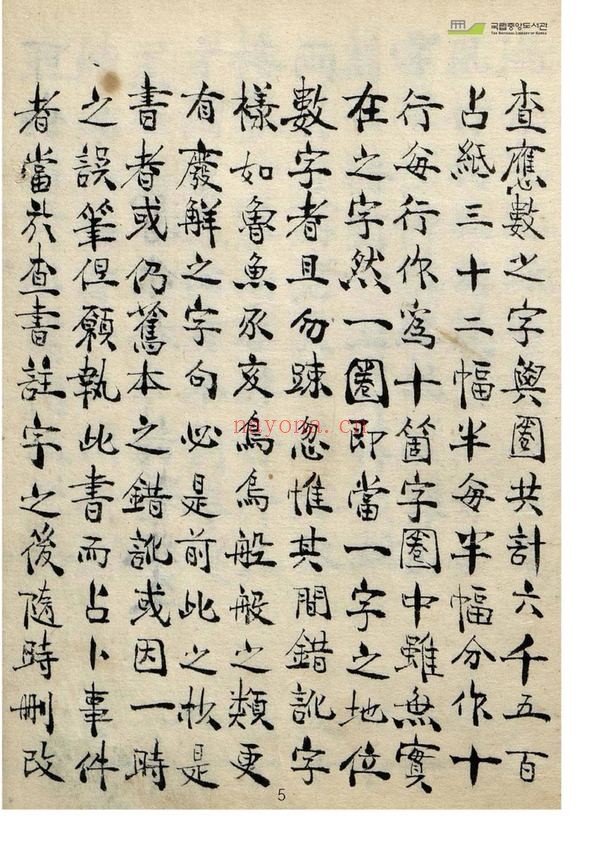 국립중앙도서관
THE NATIONAL LIBRARY OF KOREA
查應數之字與圈共計六千五百
占紙三十二幅半每半幅分作十
行每行作爲十箇字圈中雖無實
在之字然一圈即當一字之地位
數字者且勿踈忽惟其間錯訛字
樣如魯魚豕亥烏焉般般之類更
有廢解之字句必是前此之抄是
書者或仍舊本之錯訛或因一時
之誤筆但願執此書而占卜事件
者當於查書註字之後隨時刪改
nayona.cn
5